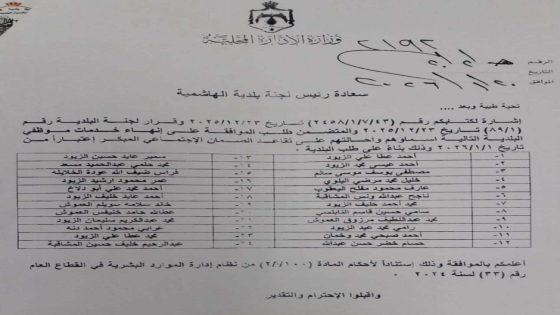 وزارة الإدارة المحلية
الرقم
التاريخ
الموافق
سعادة رئيس لجنة بلدية الهاشمية
تحية طيبة وبعد ....
إشارة لكتابكم رقم (٢٤٥٨/١/٧/٤٣) تاريخ ٢٠٢٥/١٢/٢٣ وقرار لجنة البلدية رقم
(٨٩/١) تاريخ ٢٠٢٥/١٢/٢٣ والمتضمن طلب الموافقة على إنهاء خدمات موظفي
البلدية التالية أسماؤهم وإحالتهم على تقاعد الضمان الإجتماعي المبكر إعتباراً من
تاريخ ٢٠٢٦/١/١ وذلك بناءً على طلب البلدية .
١- أحمد عطا علي الزيود ١٣- سمير عابد حسين الزيود
٢- أحمد عيسى محمد الزيود ١٤- محمد حلمي عبدالحميد مسعد
٣- مصطفى يوسف موسى سالم ١٥- فراس ضيف الله عودة الخلايله
٤- خليل محمد مرضي البلوي ١٦- عمر محمود ارشيد الزيود
٥- عارف محمود مفلح اليعقوب ١٧- أحمد محمد علي أبو دلاخ
٦- ناجح عبدالله ونس المشاقبة ١٨- أحمد عابد خليف الزيود
٧- محمد أحمد خليف الزيود ١٩- خالد سلامه سويلم العموش
٨- سامي حسين قاسم النابلسي ٢٠- عطالله حامد خنيفس العموش
٩- محمد عبداللطيف مرزوق العموش ٢١- محمد عبدالكريم سليمان الزيود
١٠- رامي محمد عبد الزيود ٢٢- عرابي محمود أحمد دنه
١١- أحمد صبحي محمد وخمان ٢٣- محمد عطا علي الزيود
١٢- حسام خضر حسن عبدالله ٢٤- عبدالرحيم خليف حسين المشاقبة
أعلمكم بالموافقة وذلك إستناداً لأحكام المادة (١٠٠/أ/٢) من نظام إدارة الموارد البشرية في القطاع العام
رقم (٣٣) لسنة ٢٠٢٤ .
واقبلوا الإحترام والتقدير